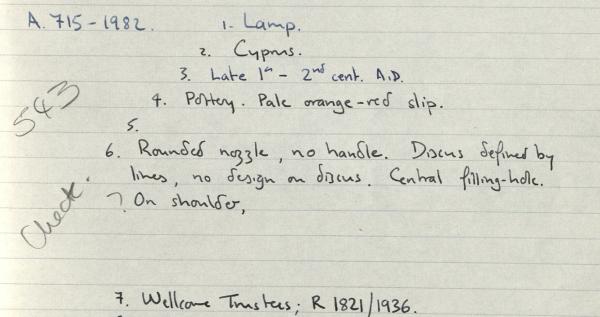 A. 715-1982. 1. Lamp.
2. Cyprus.
3. Late 1st - 2nd cent. A.D.
4. Pottery. Pale orange-red slip.
543
5.
6. Rounded nozzle, no handle. Discus defined by
lines, no design on discus. Central filling-hole.
Check.
? On shoulder,
7. Wellcome Trustees; R 1821/1936.